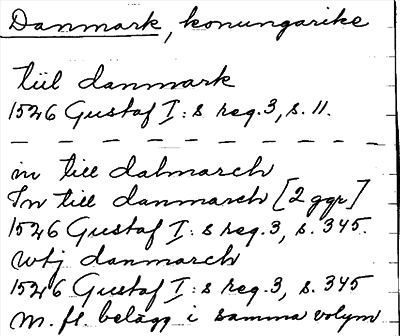 Danmark, konungarike
tiil danmark
1526 Gustaf I:s reg. 3, s. 11.
— — — — — — — — — —
in till dalmarch
In till danmarch [2 ggr]
1526 Gustaf I:s reg. 3, s. 345.
wtj danmarch
1526 Gustaf I:s reg. 3, s. 345
m. fl. belägg i samma volym